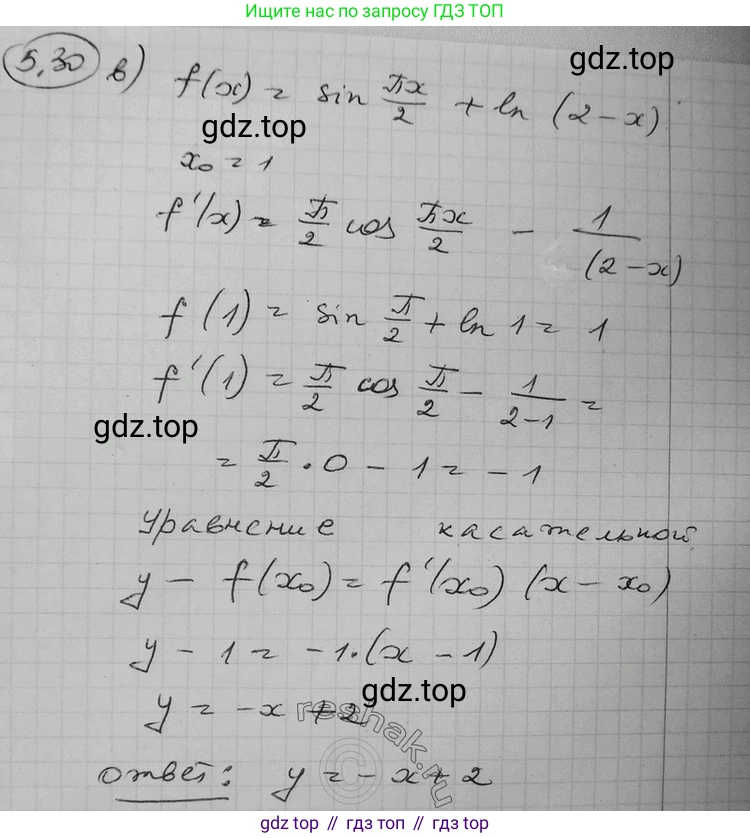 Ищите нас по запросу ГДЗ ТОП
5,30 в) f(x) = sin πx/2 + ln (2 - x)
gdz.top
gdz.top
x₀ = 1
f'(x) = π/2 cos πx/2 - 1/(2-x)
f(1) = sin π/2 + ln 1 = 1
f'(1) = π/2 cos π/2 - 1/(2-1) =
gdz.top
= π/2 · 0 - 1 = -1
Уравнение касательной
y - f(x₀) = f'(x₀) (x - x₀)
y - 1 = -1·(x - 1)
gdz.top
y = -x + 2
reshak.ru
ответ: y = -x + 2
gdz.top // gdz.top // gdz.top